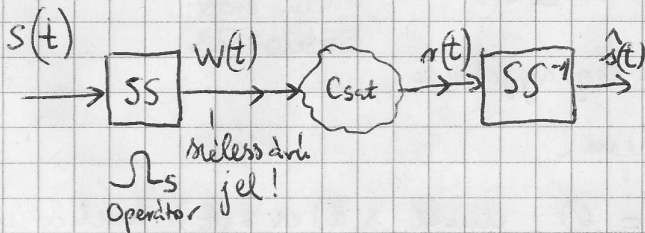 S(t)
SS
W(t)
Csat
r(t)
SS⁻¹
ŝ(t)
szélessávú
jel!
S
Operátor